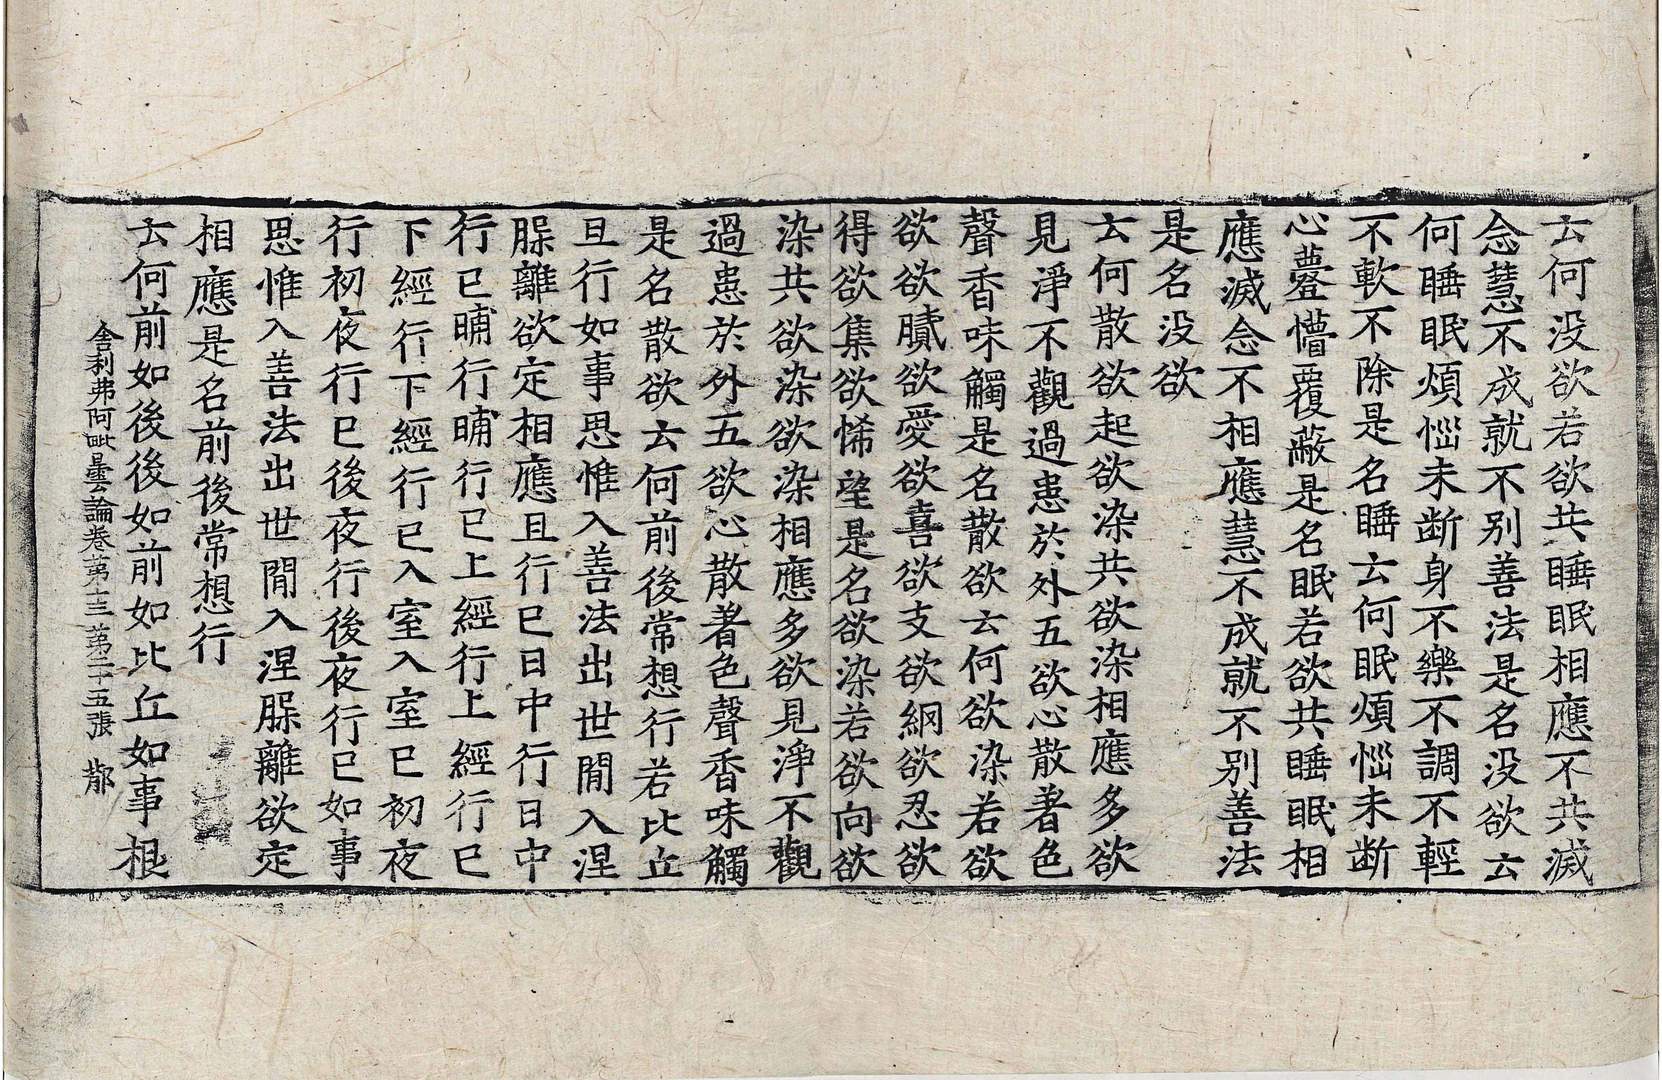 云何没欲若欲共睡眠相應不共滅
念慧不成就不别善法是名没欲云
何睡眠煩惱未断身不樂不調不輕
不軟不除是名睡云何眠煩惱未断
心㝱懵覆蔽是名眠若欲共睡眠相
應滅念不相應慧不成就不别善法
是名没欲
云何散欲起欲染共欲染相應多欲
見淨不觀過患於外五欲心散著色
聲香味觸是名散欲云何欲染若欲
欲欲膩欲愛欲喜欲支欲網欲忍欲
得欲集欲悕望是名欲染若欲向欲
染共欲染欲染相應多欲見淨不觀
過患於外五欲心散著色聲香味觸
是名散欲云何前後常想行若比丘
旦行如事思惟入善法出世閒入涅
脲離欲定相應旦行已日中行日中
行已晡行晡行已上經行上經行已
下經行下經行已入室入室已初夜
行初夜行已後夜行後夜行已如事
思惟入善法出世閒入涅脲離欲定
相應是名前後常想行
云何前如後後如前如比丘如事根
舍利弗阿毗曇論卷第十三 第二十五張 鄁